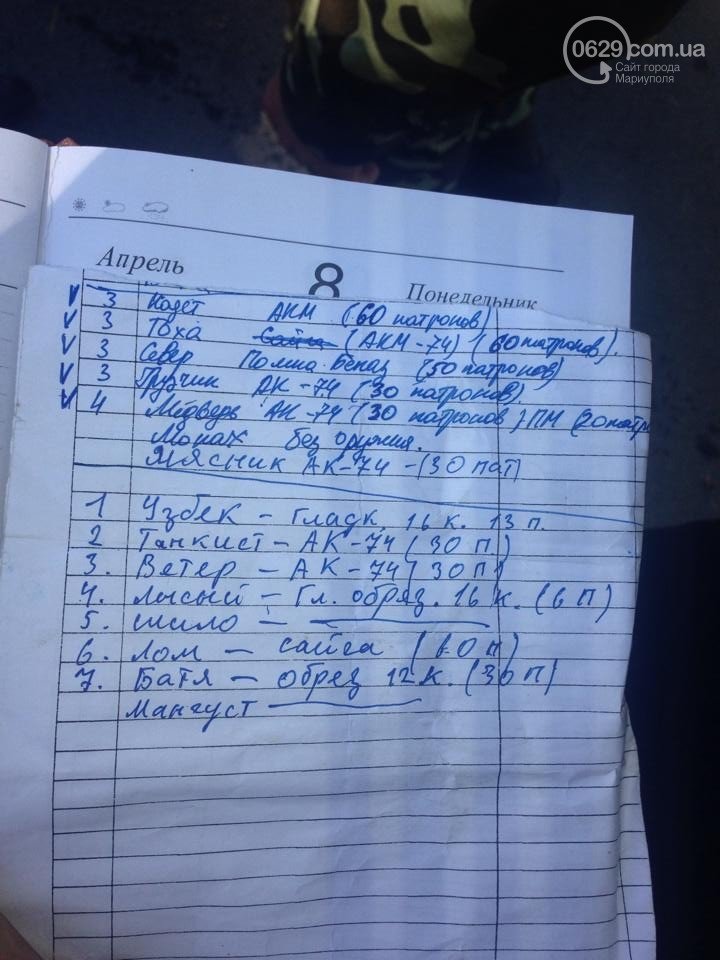 0629com.ua
Сайт города
Мариуполя
Апрель 8 Понедельник
3 Кадет АКМ (60 патронов)
3 Тоха Сайга (АКМ-74) (60 патронов).
3 Север (50 патронов)
3 Грузчик АК-74 (30 патронов).
4 Мідведь АК-74 (30 патронов) ПМ (20 патр
Монах без оружия.
Мясник АК-74-(30 пат)
1 Узбек - гладк. 16 к. 13 п.
2 Танкист - АК-74 (30 п.)
3. Ветер - АК-74 (30 п)
4. Лысый - Гл. обрез. 16 к. (6 п)
5. Шило -
6. Лом - сайга (10 п)
7. Батя - обрез 12 к. (30 п)
Мангуст